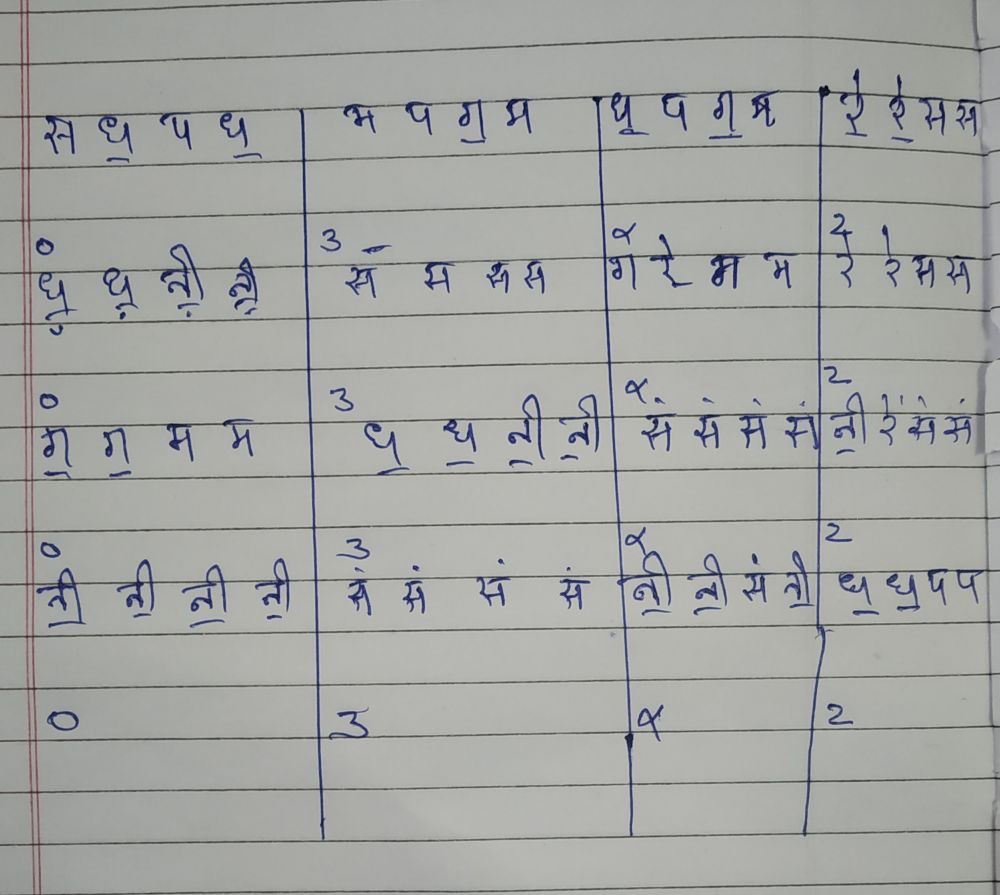 स ध॒ प ध॒ म प ग॒ म ध॒ प ग॒ म रे॒ रे॒ स स
0 3 × 2
ध़॒ ध़॒ नी़॒ नी़॒ स स स स ग रे॒ म म रे रे स स
0 3 × 2
ग॒ ग॒ म म ध॒ ध॒ नी॒ नी॒ सं सं सं सं नी॒ रें सं सं
0 3 × 2
नी॒ नी॒ नी॒ नी॒ सं सं सं सं नी॒ नी॒ सं नी॒ ध॒ ध॒ प प
0 3 × 2